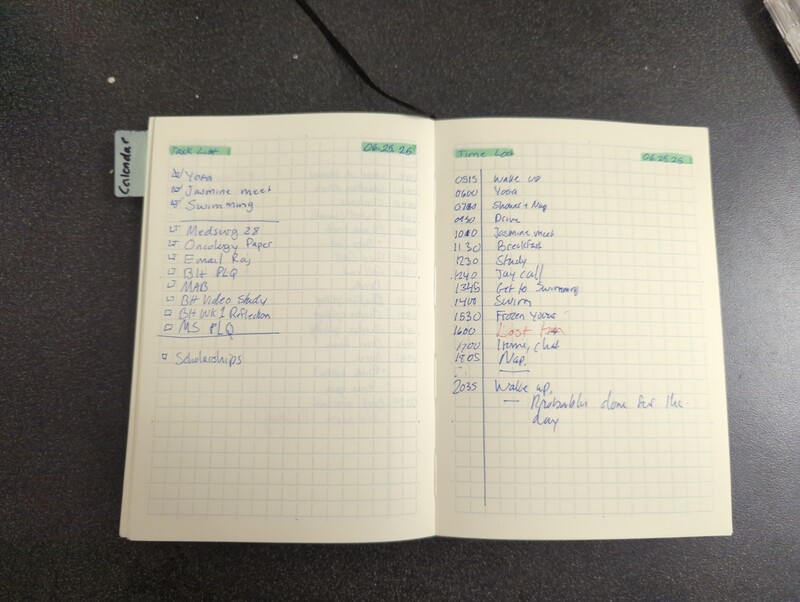 Calendar
Task List 06.25.25
Yoga
Jasmine meet
Swimming
Medsurg 28
Oncology Paper
Email Raj
BH PLQ
MAB
BH Video Study
BH WK 1 Reflection
MS PLQ
Scholarships
Time Log 06.25.25
0515 Wake up
0600 Yoga
Shower + Nap
0930 Drive
Jasmine meet
1130 Breakfast
1230 Study
1240 Jay call
1345 Get to Swimming
1400 Swim
1530 Frozen
1600 Lost
1700 Home, chat
1805 Nap.
2035 Wake up.
— Probably done for the
day